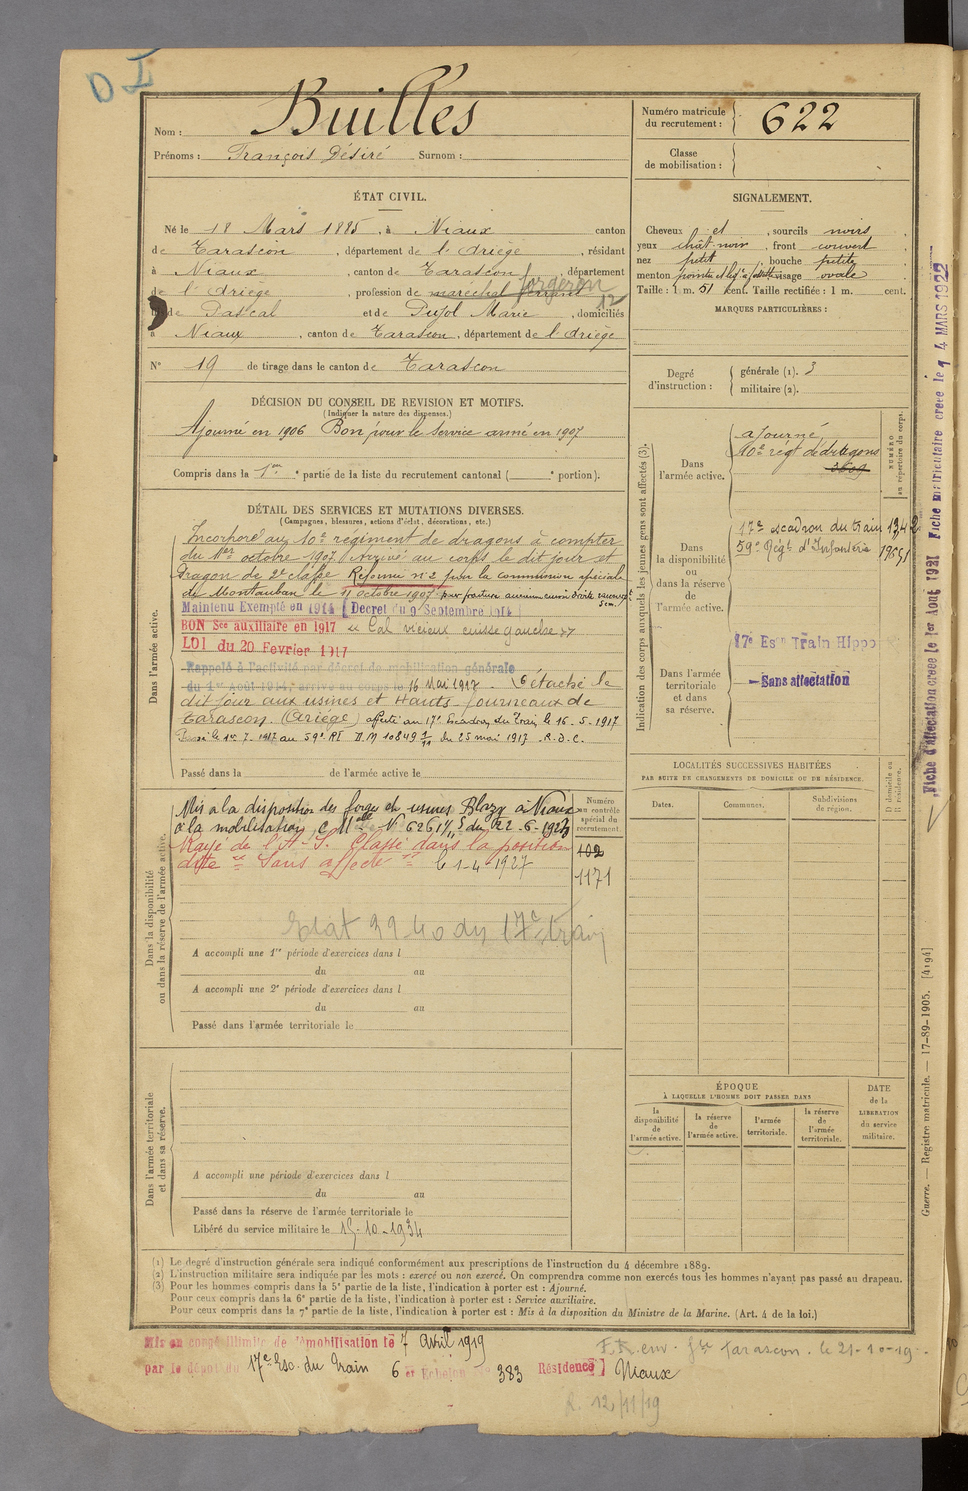 D I
Nom : Builles
Prénoms : François Désiré Surnom :
Numéro matricule du recrutement : 622
Classe de mobilisation :
ÉTAT CIVIL.
Né le 18 Mars 1885, à Niaux canton
de Tarascon, département de l'Ariège, résidant
à Niaux, canton de Tarascon, département
de l'Ariège, profession de maréchal ferrant forgeron 12
de Pascal et de Pujol Marie, domiciliés
à Niaux, canton de Tarascon, département de l'Ariège
N° 19 de tirage dans le canton de Tarascon
SIGNALEMENT.
Cheveux et, sourcils noirs,
yeux chât-noir, front couvert
nez petit, bouche petite
menton pointu visage ovale
Taille : 1 m. 51 cent. Taille rectifiée : 1 m. cent.
MARQUES PARTICULIÈRES :
Degré d'instruction : générale (1). 3
militaire (2).
DÉCISION DU CONSEIL DE REVISION ET MOTIFS.
(Indiquer la nature des dispenses.)
Ajourné en 1906 Bon pour le Service armé en 1907
Compris dans la 1ère partie de la liste du recrutement cantonal ( portion).
DÉTAIL DES SERVICES ET MUTATIONS DIVERSES.
(Campagnes, blessures, actions d'éclat, décorations, etc.)
Dans l'armée active.
Incorporé au 10e régiment de dragons à compter
du 1er octobre 1907 Arrivé au corps le dit jour et
Dragon de 2e classe Réformé n° 2 par la commission spéciale
de Montauban le 11 octobre 1907 pour
Maintenu Exempté en 1914 [Décret du 9 Septembre 1914]
BON Sce auxiliaire en 1917 "Cal vicieux cuisse gauche"
LOI du 20 Fevrier 1917
Rappelé à l'activité par décret de mobilisation générale
du 1er Août 1914, arrivé au corps le 16 Mai 1917. Détaché le
dit jour aux usines et Hauts-fourneaux de
Tarascon (Ariège) affecté au 17e Escadron du Train le 16.5.1917
Passé le 1er 7.1917 au 59e RI D.M 10849 du 25 mai 1917
Passé dans la de l'armée active le
Indication des corps auxquels les jeunes gens sont affectés (3).
NUMÉRO au répertoire du corps.
Dans l'armée active. ajourné
10e régt de dragons
Dans la disponibilité ou dans la réserve de l'armée active.
17e escadron du train 1342
59e Régt d'Infanterie
17e Esn Train Hippo
Dans l'armée territoriale et dans sa réserve.
Sans affectation
Dans la disponibilité ou dans la réserve de l'armée active.
Mis à la disposition des forges et usines Blazy à Niaux
à la mobilisation C Mlle N° 6261 du 22-6-1923
Rayé de l'A.S. Classé dans la position
dite "Sans affecton" le 1-4-1927
Numéro au contrôle spécial du recrutement.
102
1171
Etat 39 40 du 17e train
A accompli une 1re période d'exercices dans l
du au
A accompli une 2e période d'exercices dans l
du au
Passé dans l'armée territoriale le
LOCALITÉS SUCCESSIVES HABITÉES
PAR SUITE DE CHANGEMENTS DE DOMICILE OU DE RÉSIDENCE.
Dates. Communes. Subdivisions de région. D domicile ou R résidence.
ÉPOQUE
À LAQUELLE L'HOMME DOIT PASSER DANS
la disponibilité de l'armée active. la réserve de l'armée active. l'armée territoriale. la réserve de l'armée territoriale.
DATE de la LIBÉRATION du service militaire.
Dans l'armée territoriale et dans sa réserve.
A accompli une période d'exercices dans l
du au
Passé dans la réserve de l'armée territoriale le
Libéré du service militaire le 15-10-1934
(1) Le degré d'instruction générale sera indiqué conformément aux prescriptions de l'instruction du 4 décembre 1889.
(2) L'instruction militaire sera indiquée par les mots : exercé ou non exercé. On comprendra comme non exercés tous les hommes n'ayant pas passé au drapeau.
(3) Pour les hommes compris dans la 5e partie de la liste, l'indication à porter est : Ajourné.
Pour ceux compris dans la 6e partie de la liste, l'indication à porter est : Service auxiliaire.
Pour ceux compris dans la 7e partie de la liste, l'indication à porter est : Mis à la disposition du Ministre de la Marine. (Art. 4 de la loi.)
Mis en congé illimité de démobilisation le 7 Avril 1919
par le dépôt du 17e Esc. du Train 6 er Echelon 383 Résidence] Niaux
Tarascon. le 21-10-19
R. 12/11/19
Fiche d'affectation créée le 1er Août 1921 Fiche matriculaire créée le 14 MARS 1922
Guerre. — Registre matricule. — 17-89-1905. [4194]